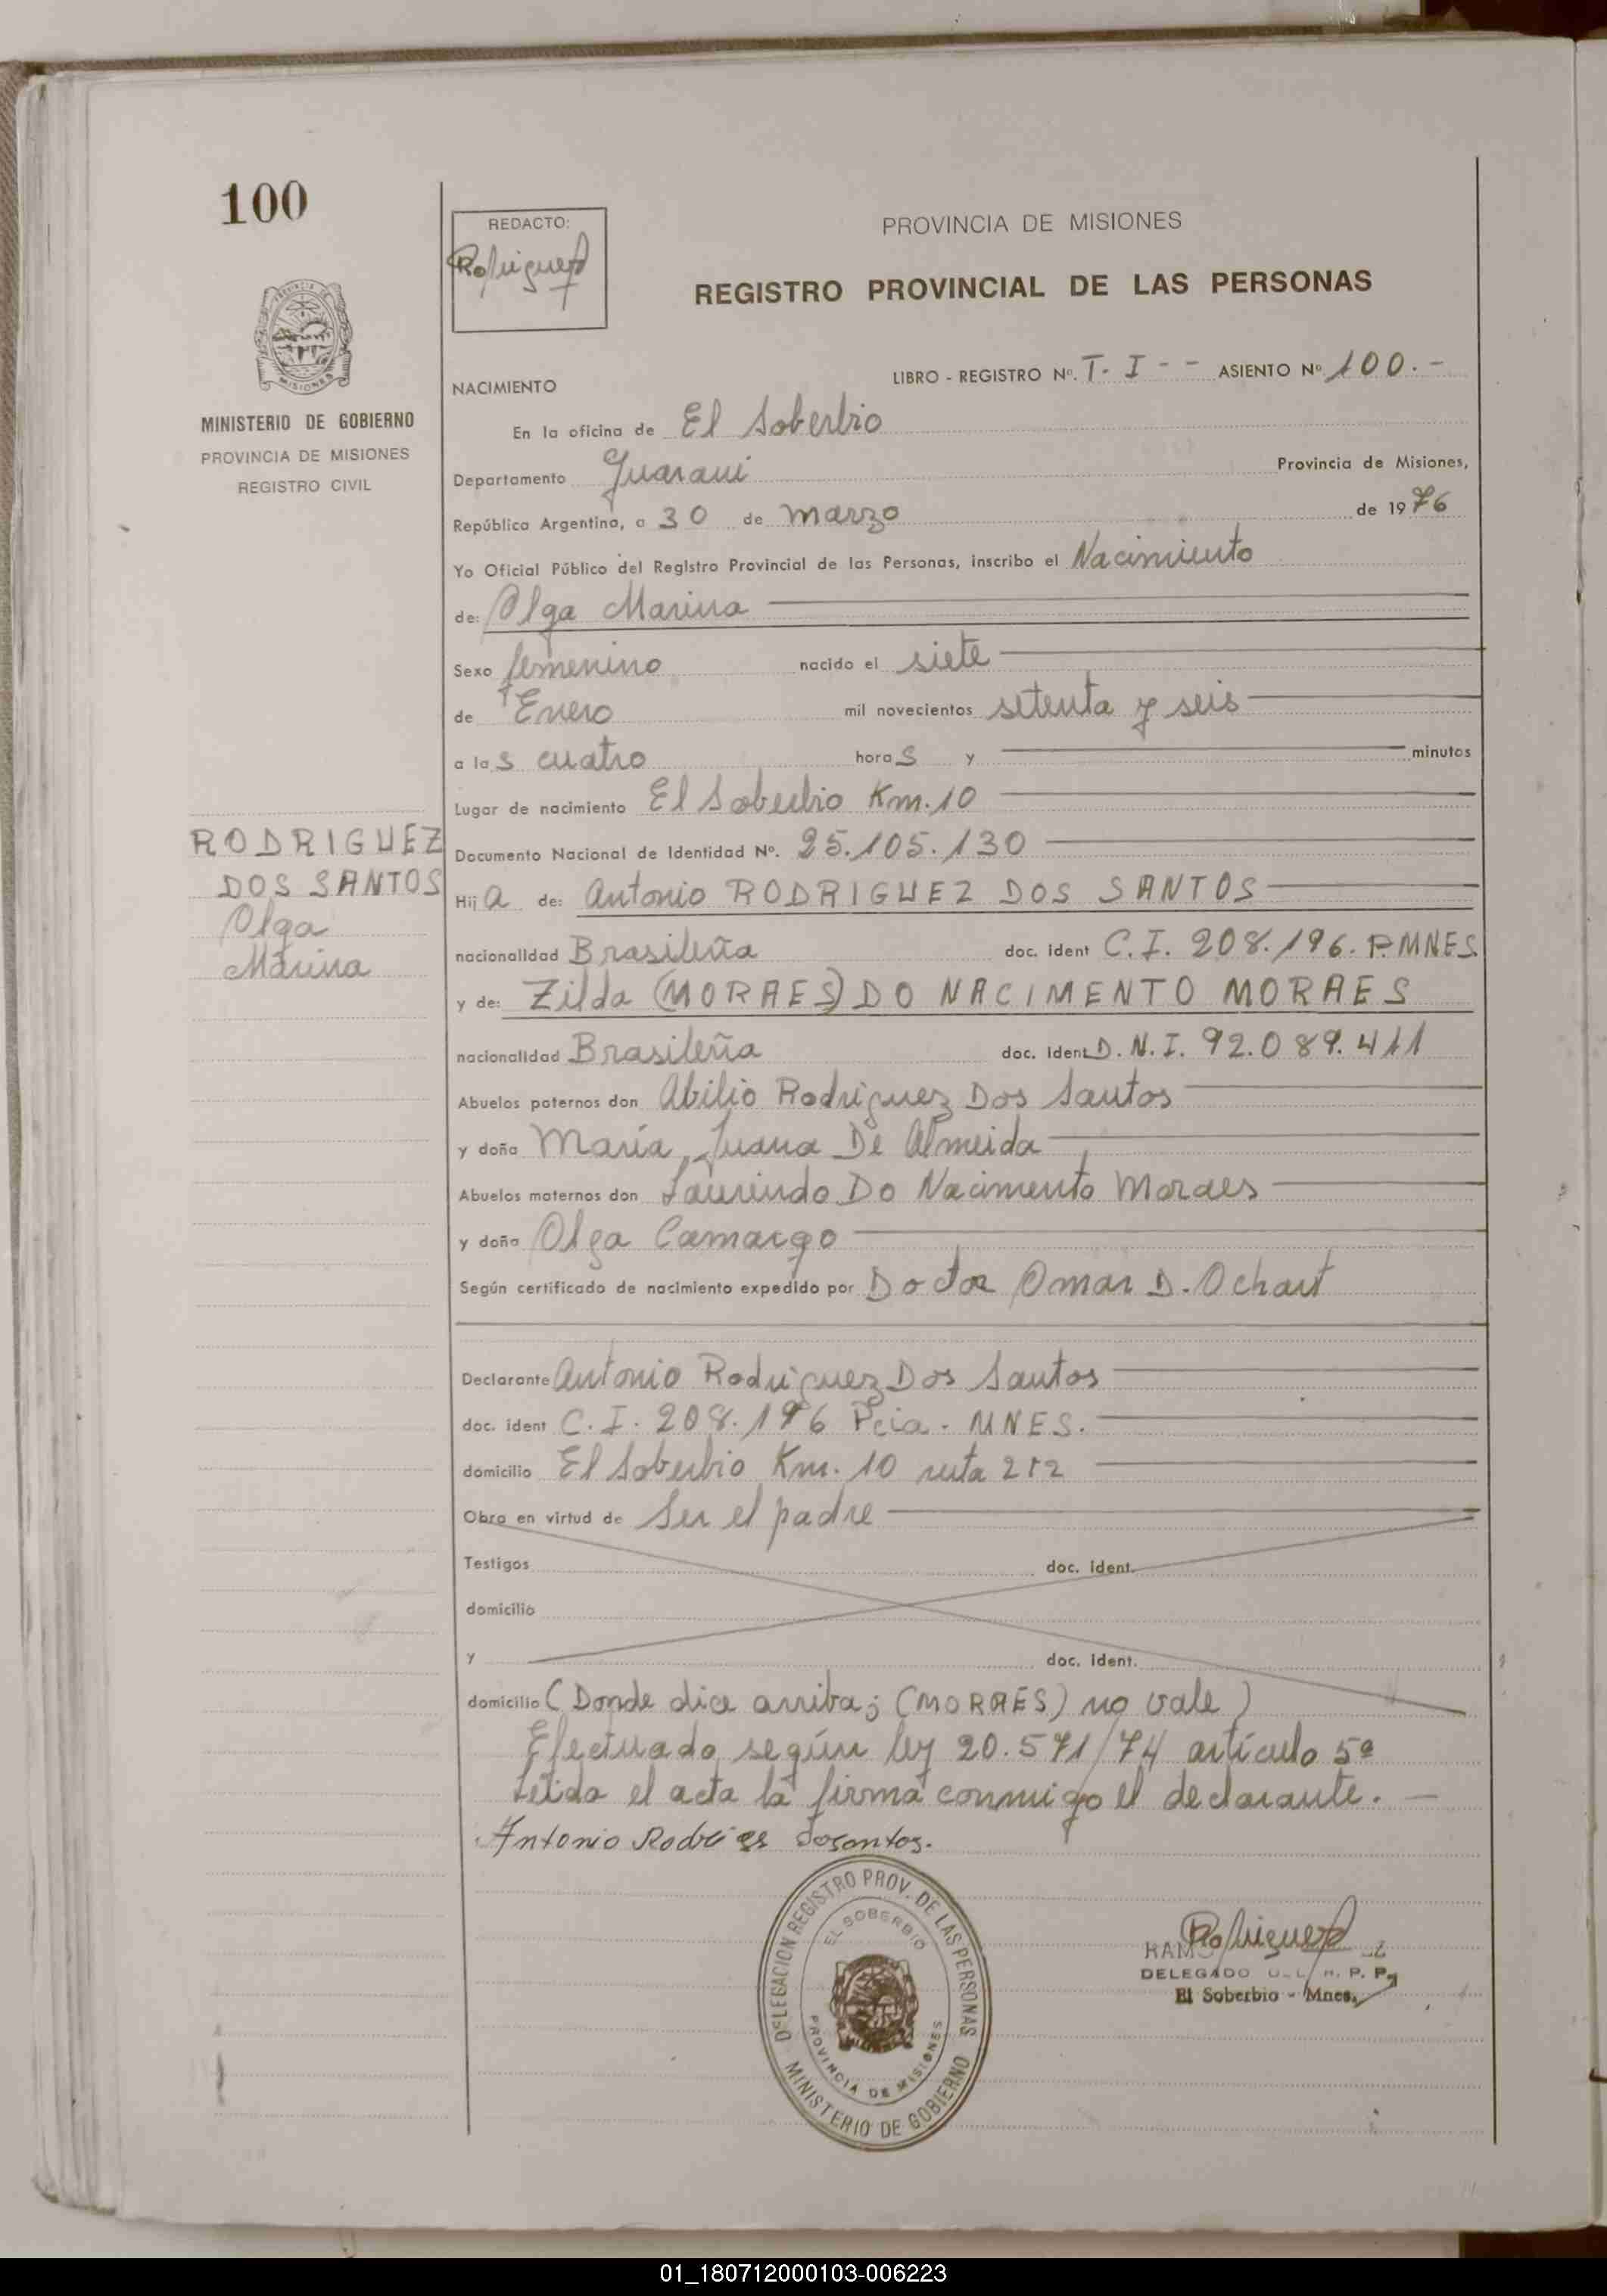 100
REDACTO:
Rodriguez
PROVINCIA DE MISIONES
REGISTRO PROVINCIAL DE LAS PERSONAS
MISIONES
MINISTERIO DE GOBIERNO
PROVINCIA DE MISIONES
REGISTRO CIVIL
LIBRO - REGISTRO Nº. T. I - - ASIENTO Nº 100. -
NACIMIENTO
En la oficina de El Soberbio
Departamento Guarani Provincia de Misiones,
República Argentina, a 30 de marzo de 1976
Yo Oficial Público del Registro Provincial de las Personas, inscribo el Nacimiento
de: Olga Marina
Sexo femenino nacido el siete
de Enero mil novecientos setenta y seis
a las cuatro horas y minutos
Lugar de nacimiento El Soberbio Km. 10
Documento Nacional de Identidad Nº. 25.105.130
RODRIGUEZ
DOS SANTOS
Olga
Marina
Hija de: Antonio RODRIGUEZ DOS SANTOS
nacionalidad Brasileña doc. ident C. I. 208.196. P. MNES
y de: Zilda (MORAES) DO NACIMENTO MORAES
nacionalidad Brasileña doc. ident D. N. I. 92.089.411
Abuelos paternos don Abilio Rodriguez Dos Santos
y doña María Juana De Almeida
Abuelos maternos don Laurindo Do Nacimento Moraes
y doña Olga Camargo
Según certificado de nacimiento expedido por Doctor Omar D. Ochart
Declarante Antonio Rodriguez Dos Santos
doc. ident C. I. 208.196 Pcia. MNES.
domicilio El Soberbio Km. 10 ruta 212
Obra en virtud de Ser el padre
Testigos doc. ident.
domicilio
y doc. ident.
domicilio (Donde dice arriba; (MORAES) no vale)
Efectuado según ley 20.571/74 artículo 5º
Leída el acta la firma conmigo el declarante. -
Antonio Rodrigs dosantos.
DELEGACION REGISTRO PROV. DE LAS PERSONAS
EL SOBERBIO
PROVINCIA DE MISIONES
MINISTERIO DE GOBIERNO
Rodriguez
DELEGADO R. P. P.
El Soberbio - Mnes.
01_180712000103-006223